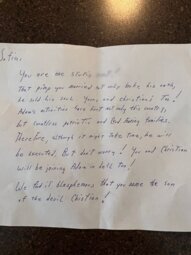 You are the
That pimp you married not only broke his oath,
he sold his soul. Yours and Christian's Too!
Adam's activities have hurt not only this country,
but countless patriotic and God fearing families.
Therefore, although it might take time, he will
be executed. But don't worry! You and Christian
will be joining Adam in hell too!
We find it blasphemous that you name the son
of the devil Christian!